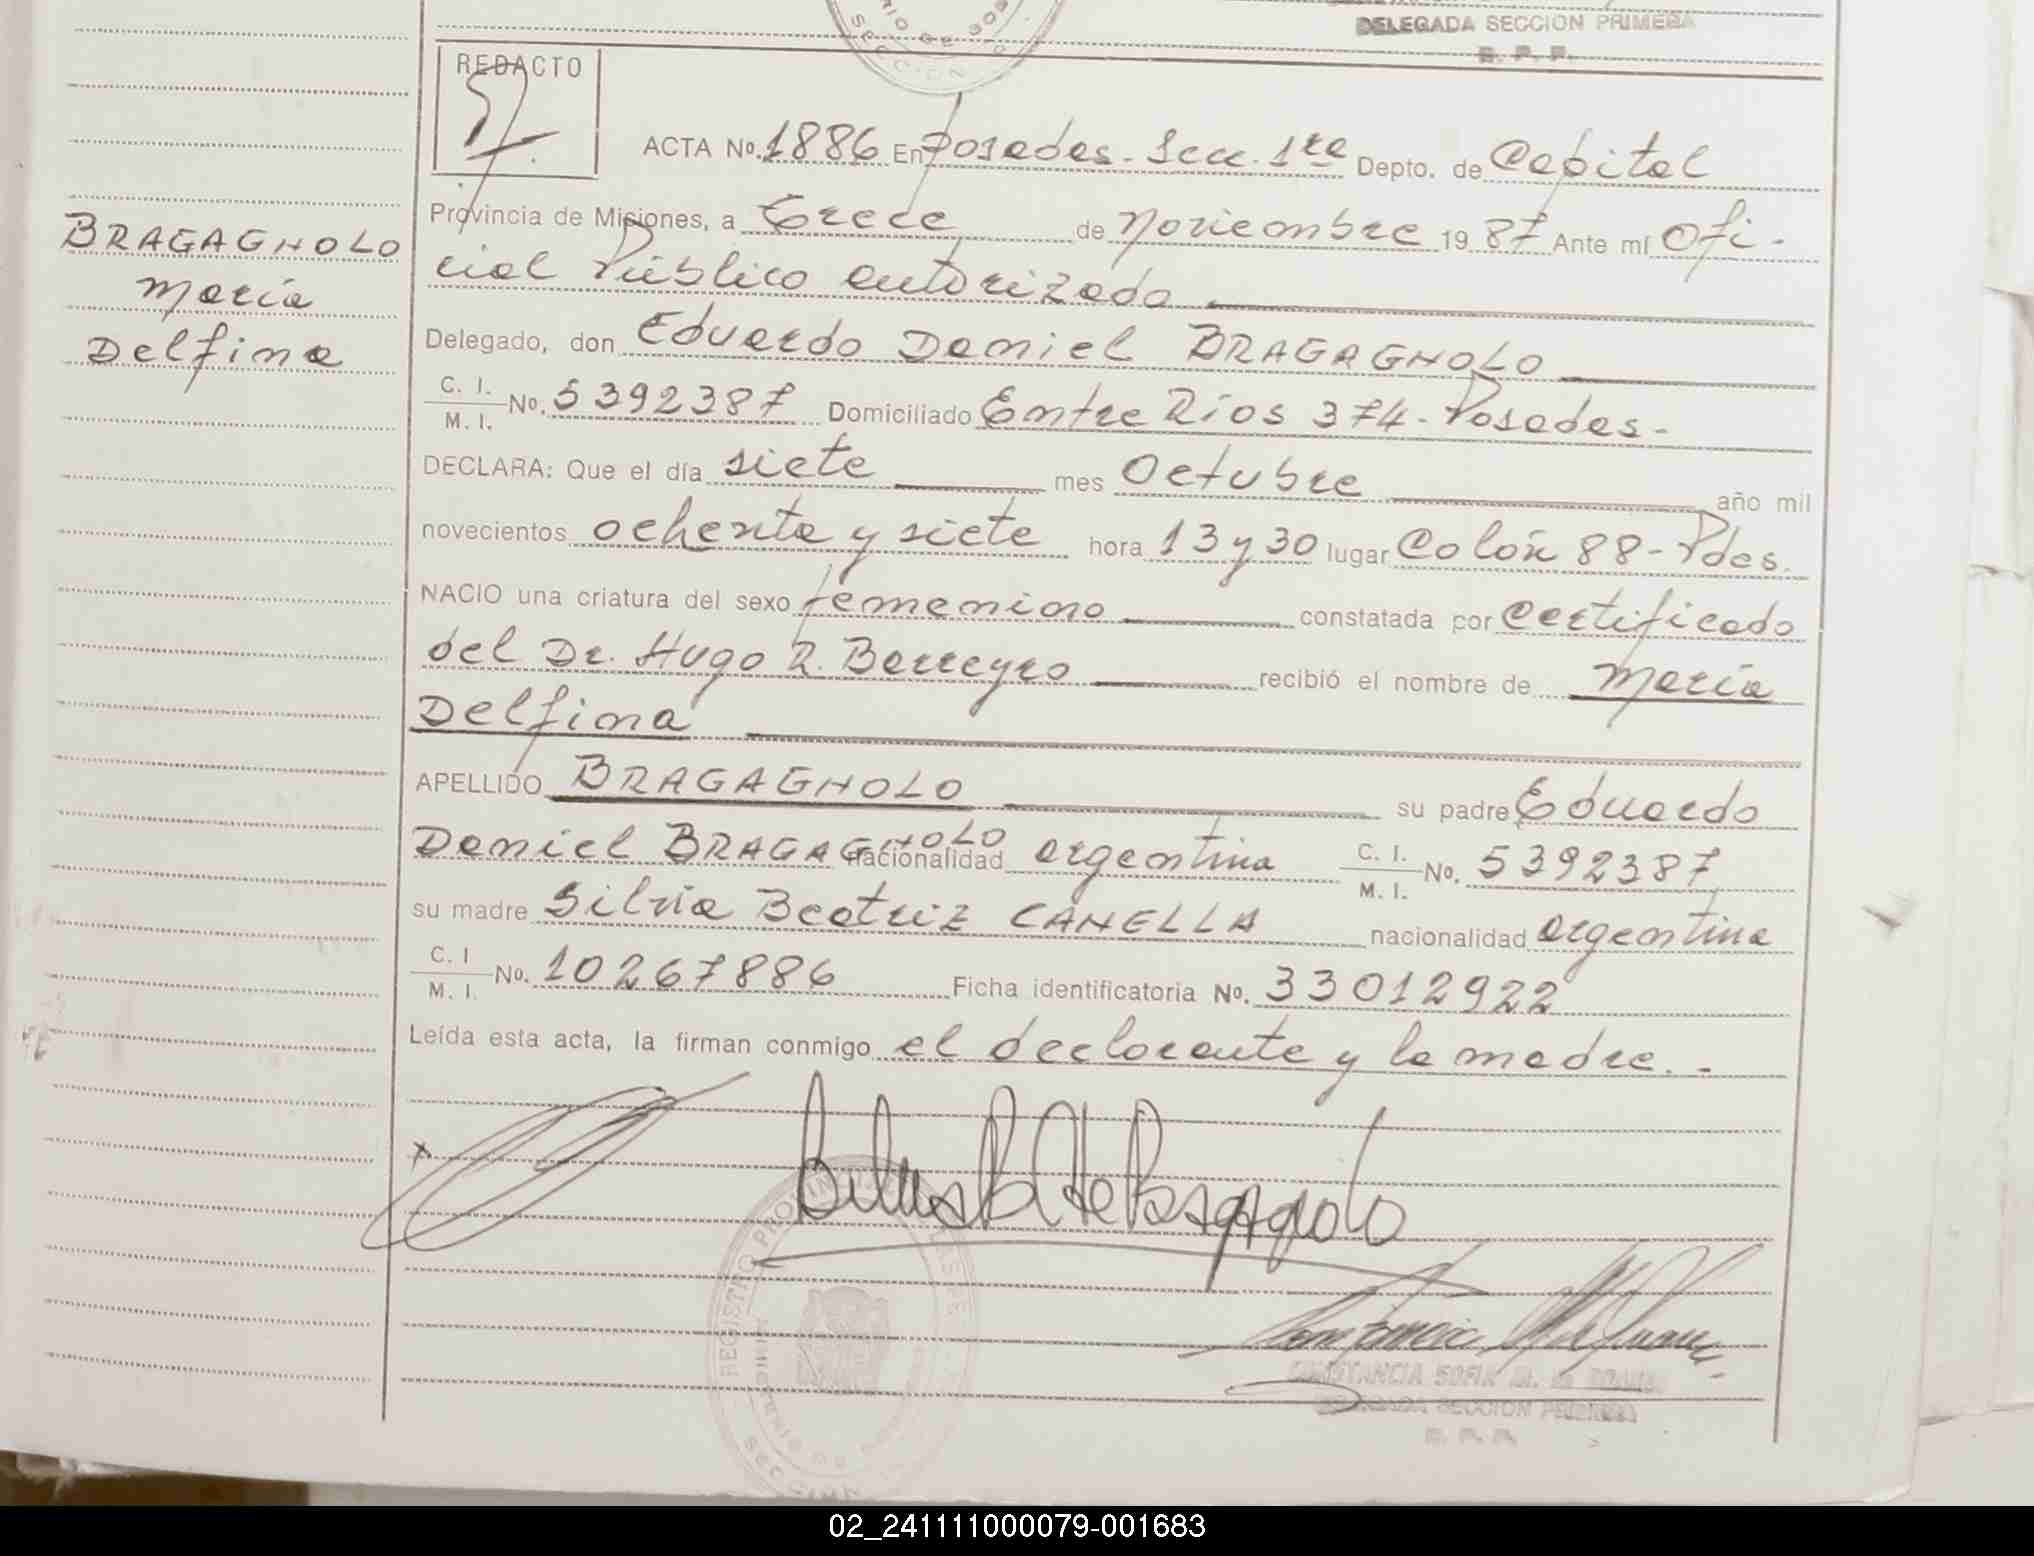 DELEGADA SECCION PRIMERA
R. P. P.
REDACTO
ACTA Nº. 1886 En Posadas - Secc. 1ra Depto. de Capital
Provincia de Misiones, a trece de Noviembre 19 87 Ante mí Ofi-
cial Público autorizado
BRAGAGNOLO
María
Delfina
Delegado, don Eduardo Daniel BRAGAGNOLO
C. I.
M. I. Nº. 5392387 Domiciliado Entre Ríos 374 - Posadas -
DECLARA: Que el día siete mes Octubre año mil
novecientos ochenta y siete hora 13 y 30 lugar Colón 88 - Pdas.
NACIO una criatura del sexo femenino constatada por Certificado
del Dr. Hugo R. Barreyro recibió el nombre de María
Delfina
APELLIDO BRAGAGNOLO su padre Eduardo
Daniel BRAGAGNOLO nacionalidad argentina C. I.
M. I. Nº. 5392387
su madre Silvia Beatriz CANELLA nacionalidad argentina
C. I
M. I. Nº. 10267886 Ficha identificatoria Nº. 33012922
Leída esta acta, la firman conmigo el declarante y la madre. -
x
REGISTRO PROVINCIAL
CONSTANCIA SOFIA M. de
DELEGADA SECCION PRIMERA
R. P. P.
02_241111000079-001683